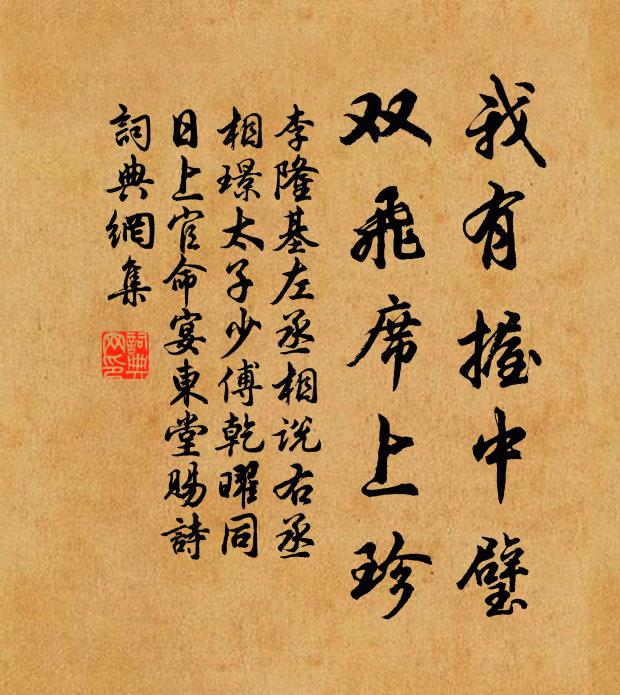 我有握中璧
双飞席上珍
李隆基左丞相说右丞
相璟太子少傅乾曜同
日上官命宴東堂賜詩
詞典網集
詞典网印